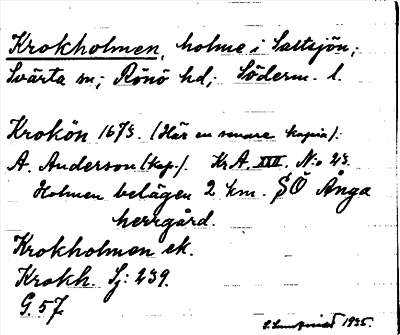 Krokholmen, holme i Saltsjön;
Svärta sn; Rönö hd; Söderm. l.
Krokön 1678. (Här en senare kopia).
A. Anderson (kap.). Kr A. XVII. N:o 23.
Holmen belägen 2 km. SÖ Ånga
herrgård.
Krokholmen ek.
Krokh. Sj: 239.
G. 57.
1935.